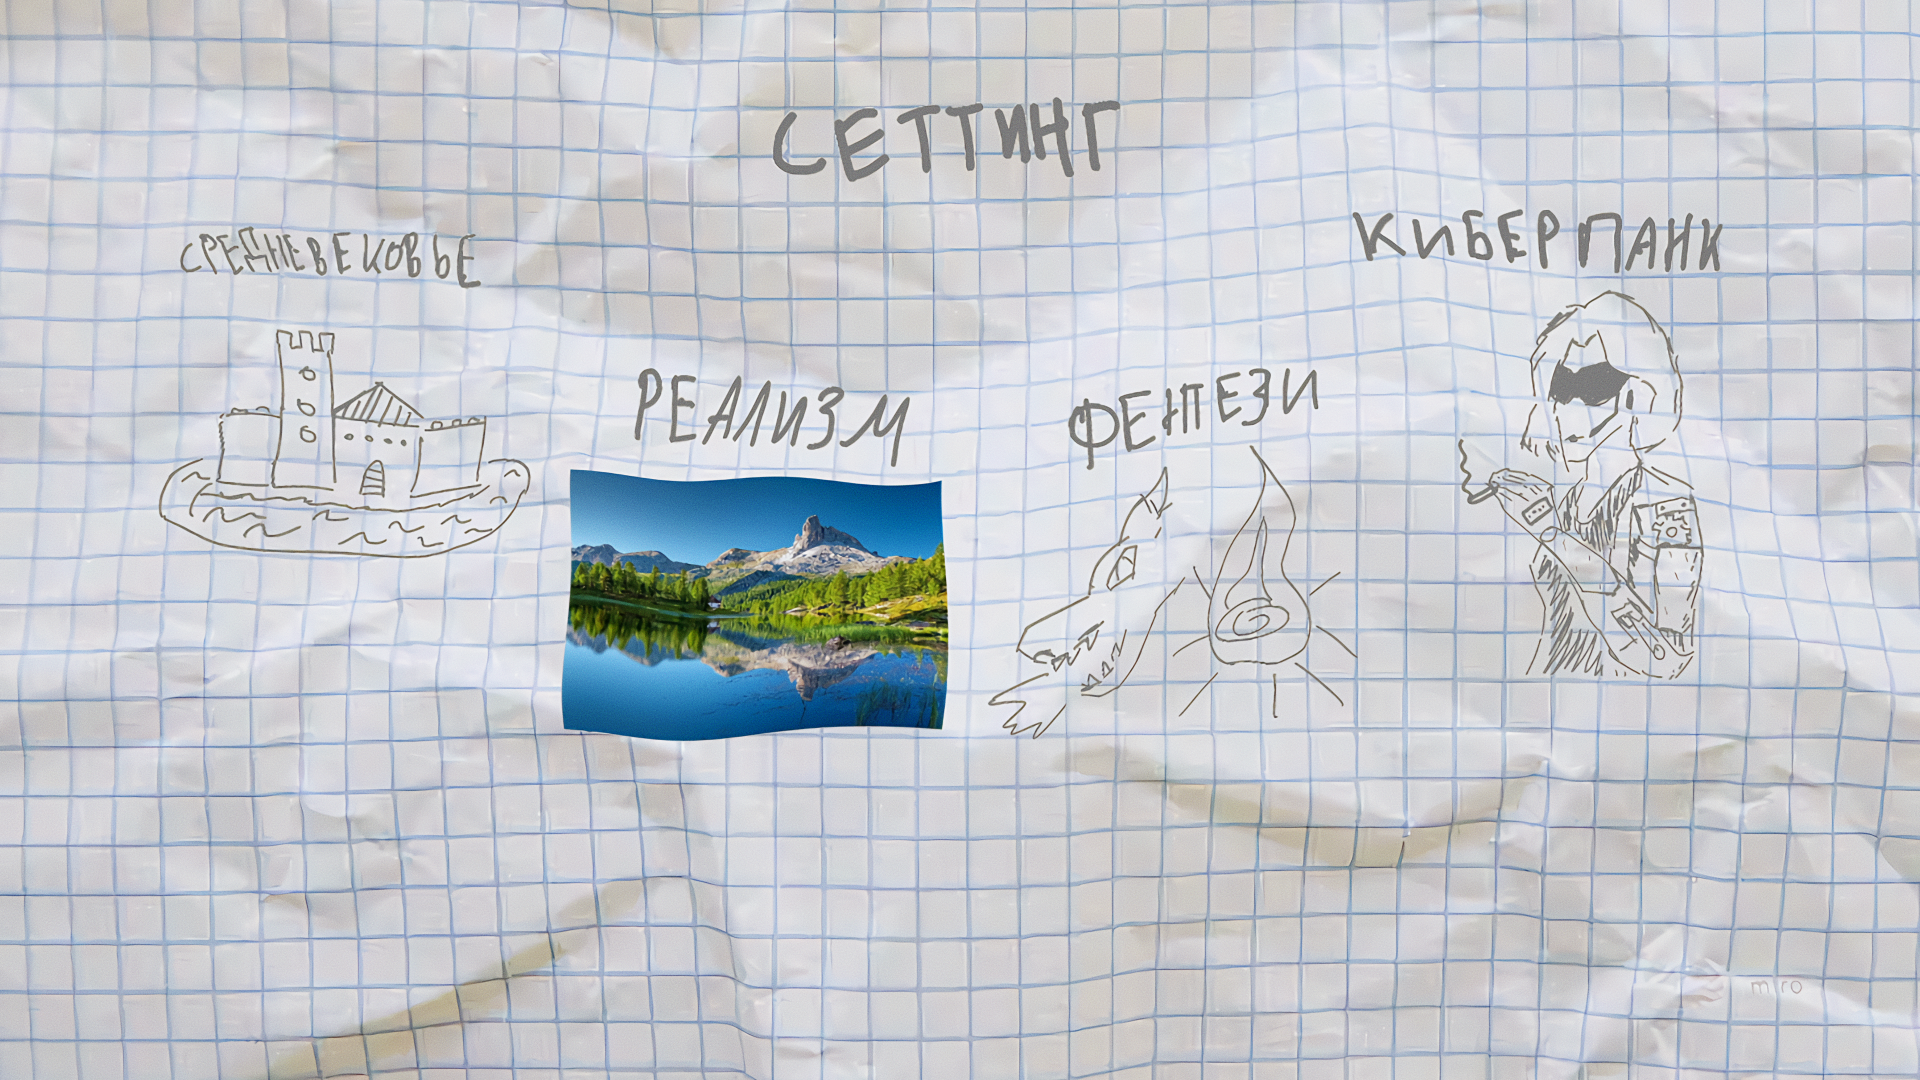 СЕТТИНГ
СРЕДНЕВЕКОВЬЕ
РЕАЛИЗМ
ФЕНТЕЗИ
КИБЕРПАНК
miro